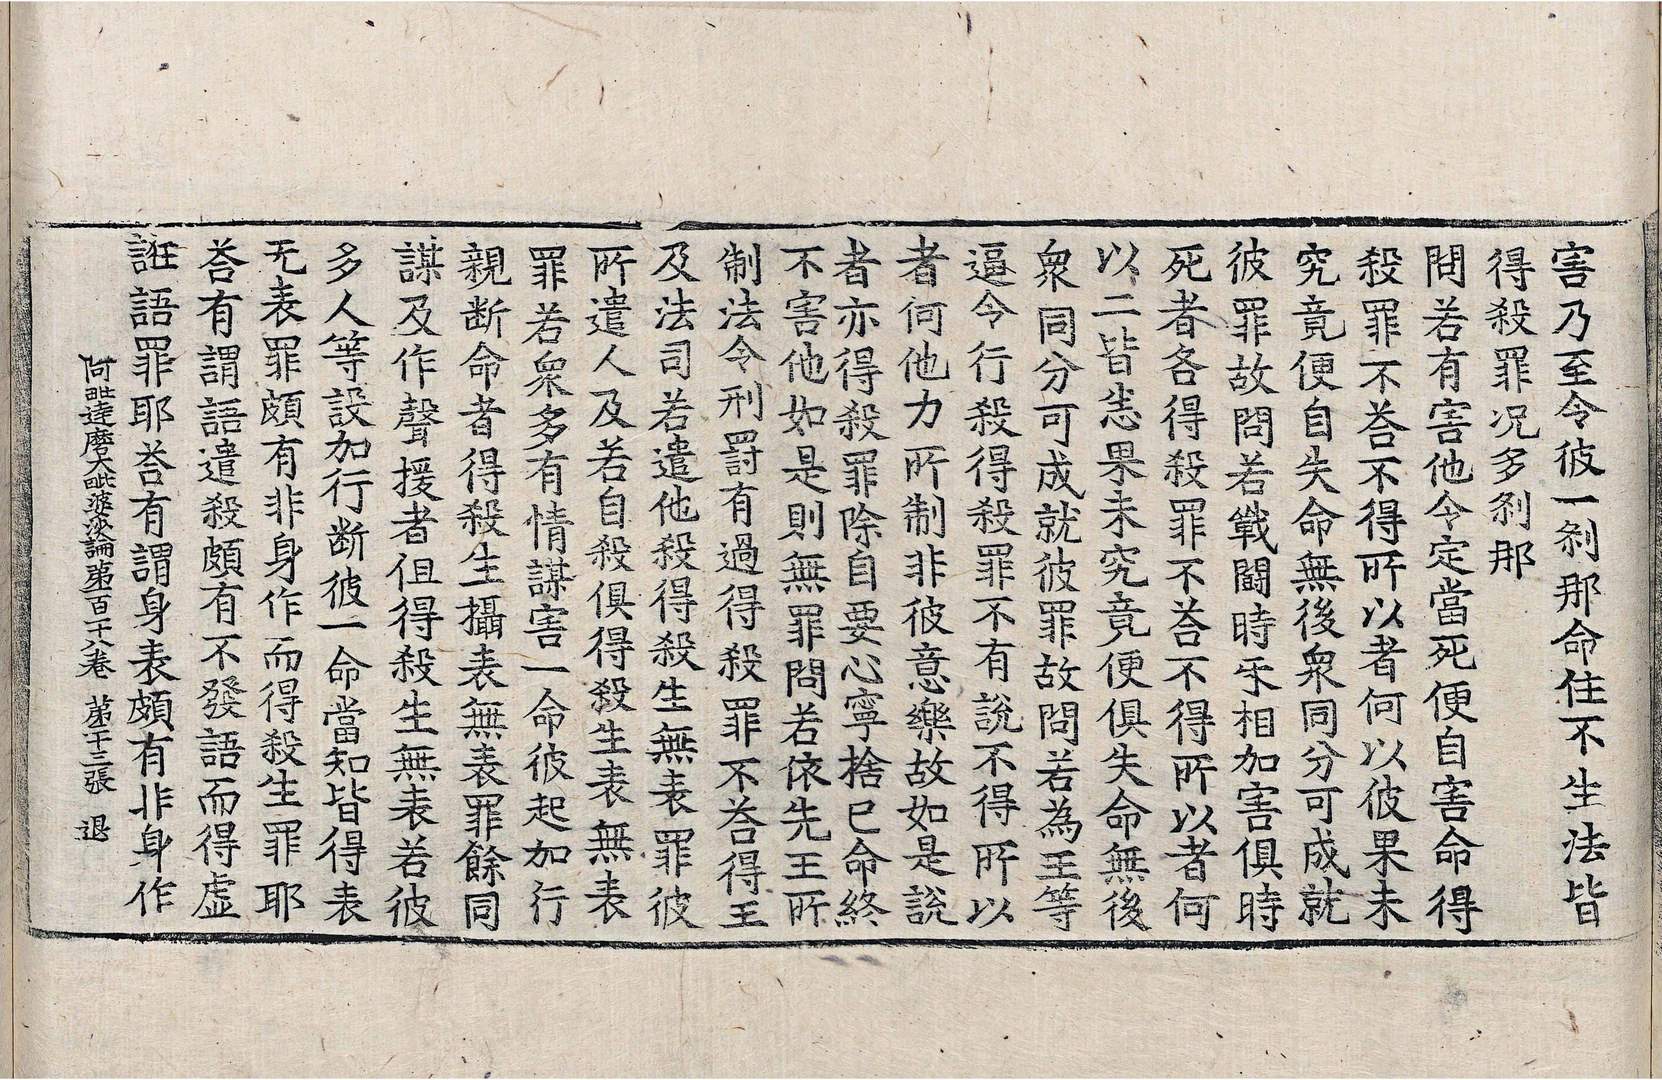 害乃至令彼一刹那命住不生法皆
得殺罪况多刹那
問若有害他令定當死便自害命得
殺罪不荅不得所以者何以彼果未
究竟便自失命無後衆同分可成就
彼罪故問若戰鬪時㸦相加害俱時
死者各得殺罪不荅不得所以者何
以二皆恙果未究竟便俱失命無後
衆同分可成就彼罪故問若為王等
逼令行殺得殺罪不有說不得所以
者何他力所制非彼意樂故如是說
者亦得殺罪除自要心寧捨已命終
不害他如是則無罪問若依先王所
制法令刑罰有過得殺罪不荅得王
及法司若遣他殺得殺生無表罪彼
所遣人及若自殺俱得殺生表無表
罪若衆多有情謀害一命彼起加行
親断命者得殺生攝表無表罪餘同
謀及作聲援者但得殺生無表若彼
多人等設加行断彼一命當知皆得表
无表罪頗有非身作而得殺生罪耶
荅有謂語遣殺頗有不發語而得虛
誑語罪耶荅有謂身表頗有非身作
阿毗達磨大毗婆沙論第一百十八卷 第十三張 退